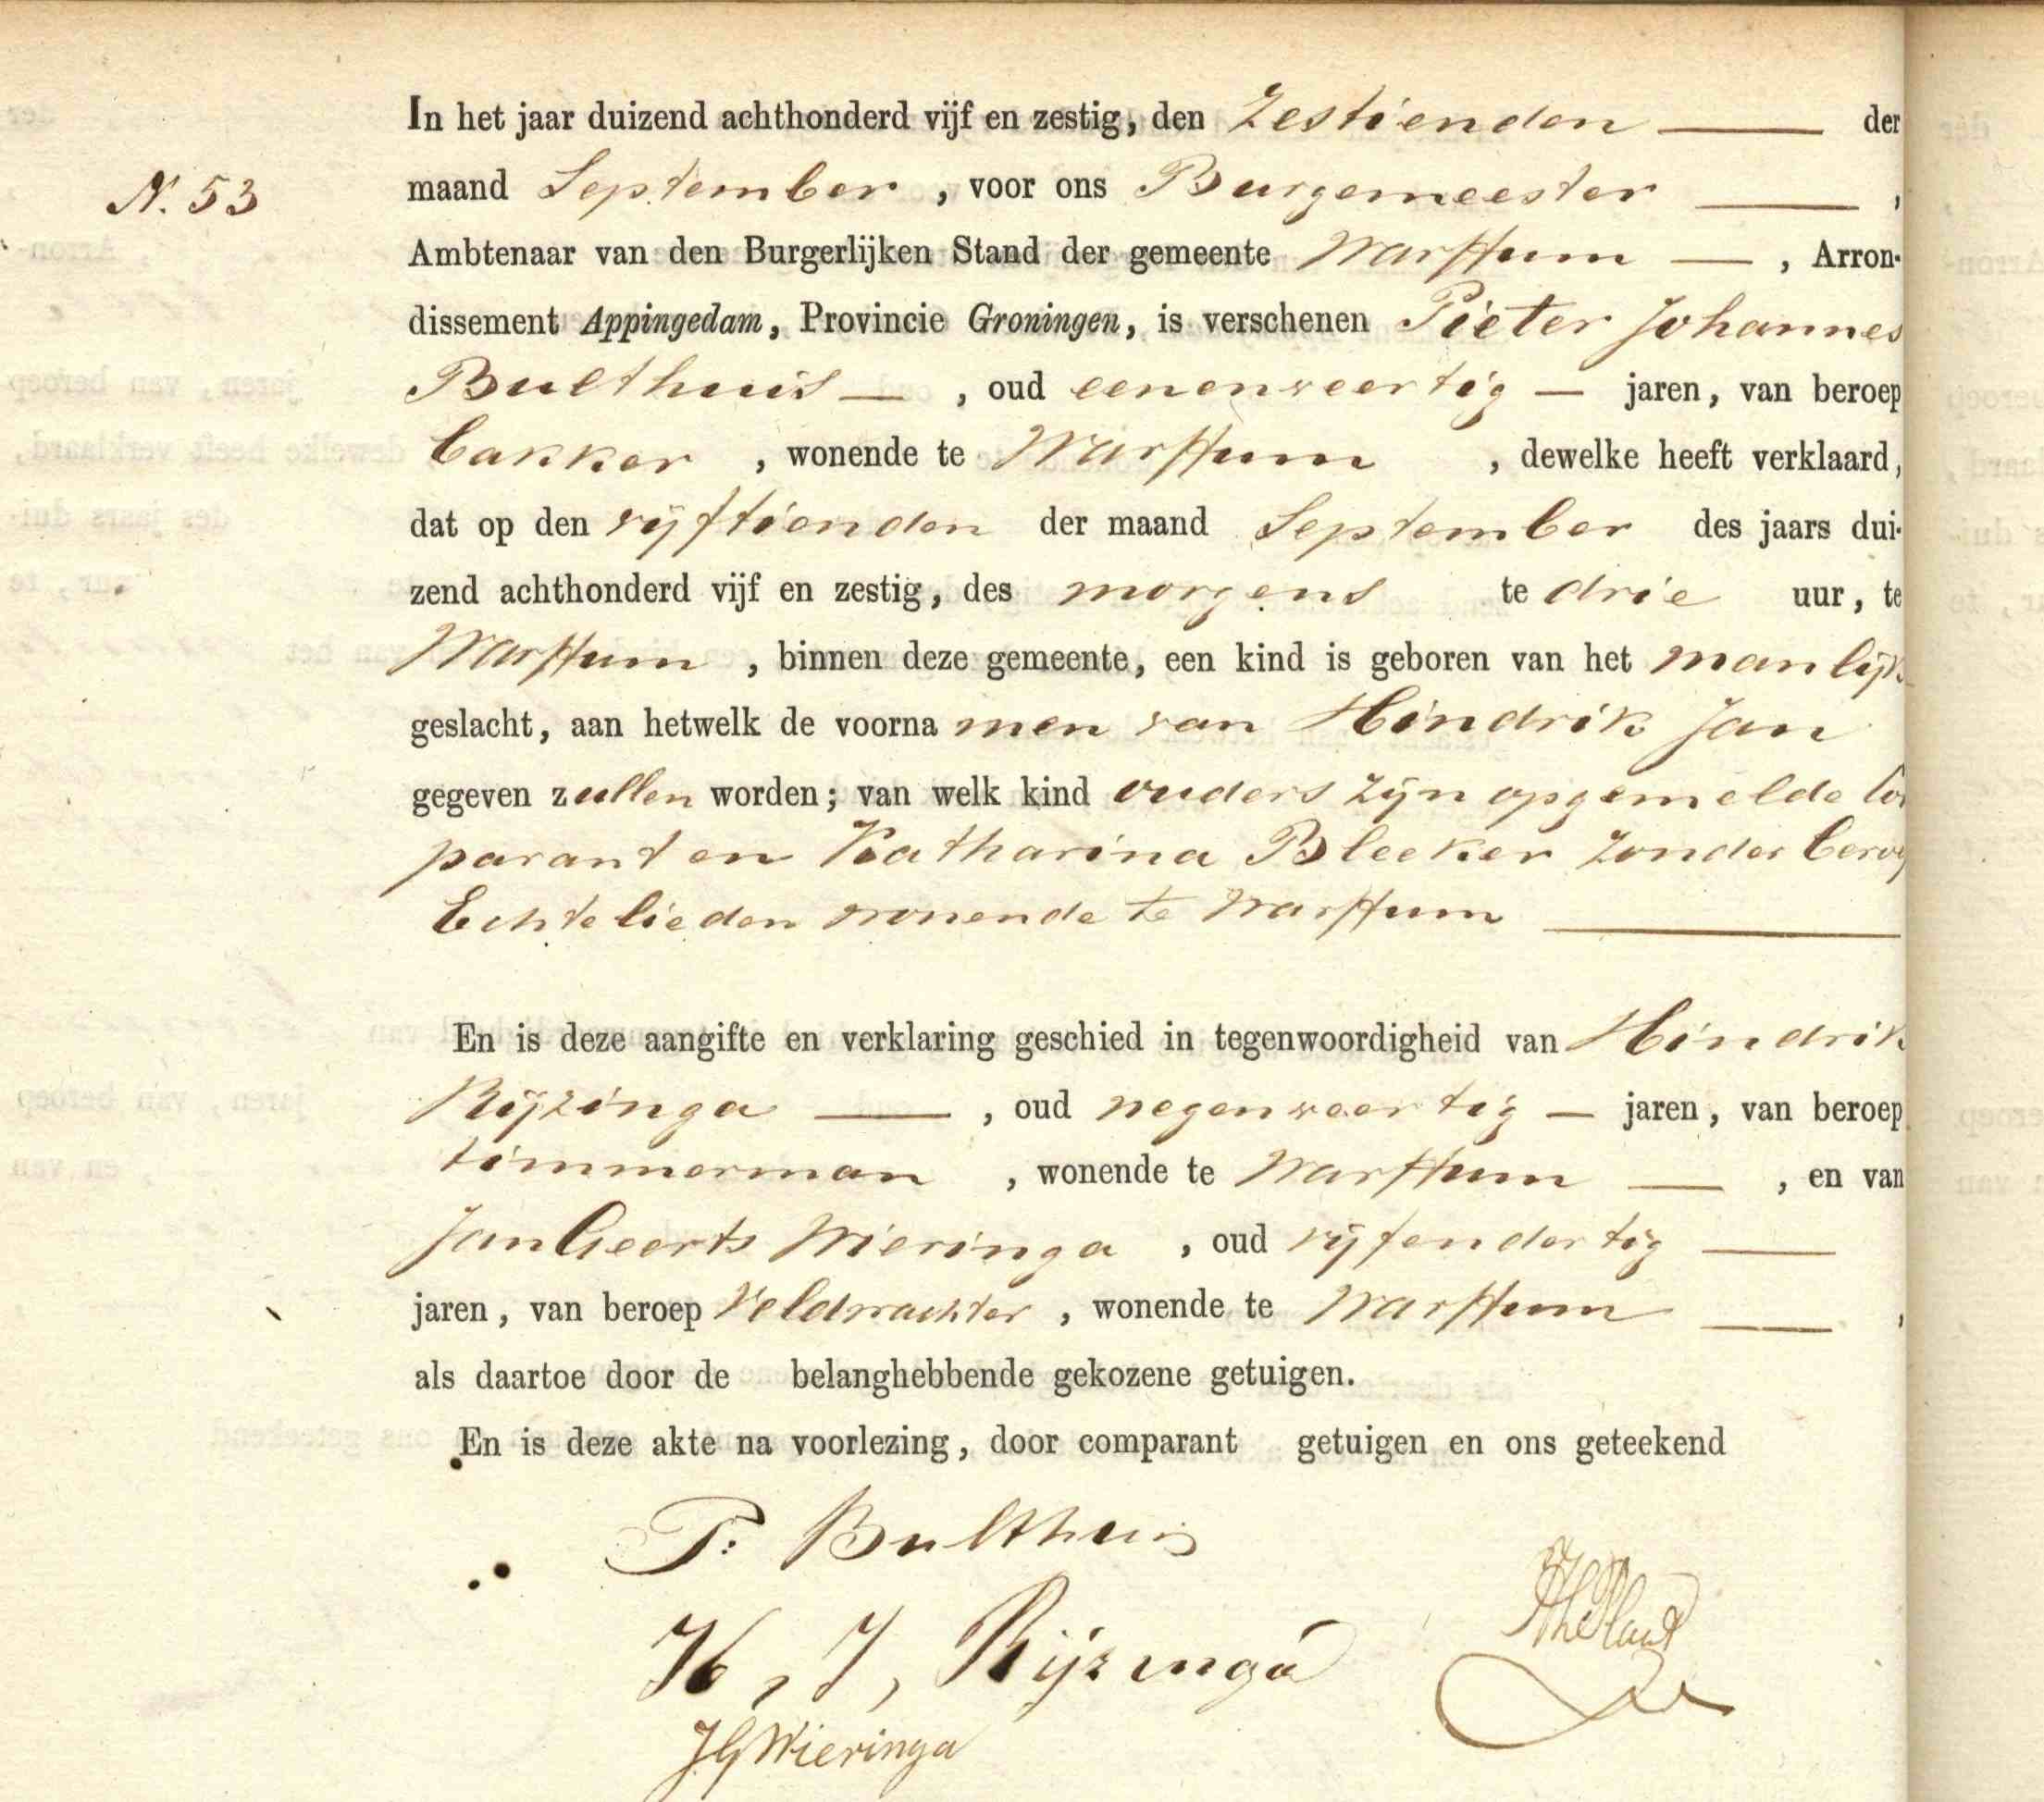 N. 53
In het jaar duizend achthonderd vijf en zestig, den Zestienden der
maand September, voor ons Burgemeester,
Ambtenaar van den Burgerlijken Stand der gemeente Warffum, Arron-
dissement Appingedam, Provincie Groningen, is verschenen Pieter Johannes
Bulthuis, oud eenenveertig jaren, van beroep
bakker, wonende te Warffum, dewelke heeft verklaard,
dat op den vijftienden der maand September des jaars dui-
zend achthonderd vijf en zestig, des morgens te drie uur, te
Warffum, binnen deze gemeente, een kind is geboren van het manlijk
geslacht, aan hetwelk de voornamen van Hindrik Jan
gegeven zullen worden; van welk kind ouders zijn opgemelde Com
parant en Katharina Bleeker zonder beroep
Echtelieden wonende te Warffum
En is deze aangifte en verklaring geschied in tegenwoordigheid van Hindrik
Rijzinga, oud negenveertig jaren, van beroep
timmerman, wonende te Warffum, en van
Jan Geerts Wieringa, oud vijfendertig
jaren, van beroep Veldwachter, wonende te Warffum,
als daartoe door de belanghebbende gekozene getuigen.
En is deze akte na voorlezing, door comparant getuigen en ons geteekend
P: Bulthuis
H, J, Rijzinga
JGWieringa